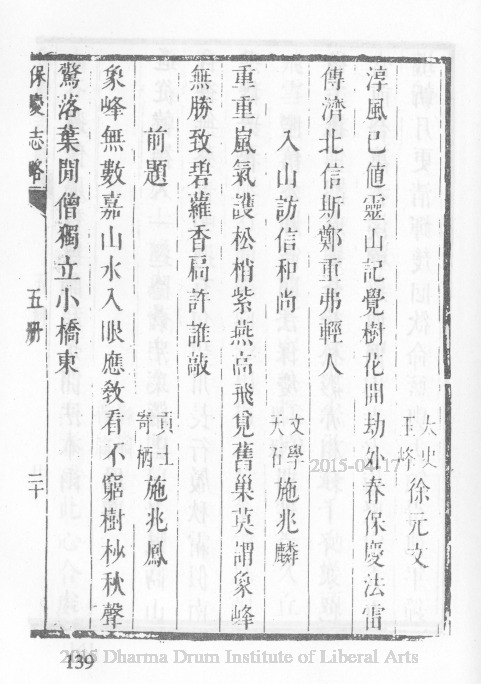 太史玉峰徐元文
淳風已値靈山記覺樹花開劫外春保慶法雷
傳濟北信斯鄭重弗輕人
入山訪信和尚
文學天石施兆麟
重重嵐氣護松梢紫燕高飛覓舊巢莫謂象峰
無勝致碧蘿香扃許誰敲
前題
貢士寄栖施兆鳳
象峰無數嘉山水入眼應教看不窮樹杪秋聲
驚落葉閒僧獨立小橋東
保慶志略
五册
二十
2015-04-17
139
2015 Dharma Drum Institute of Liberal Arts